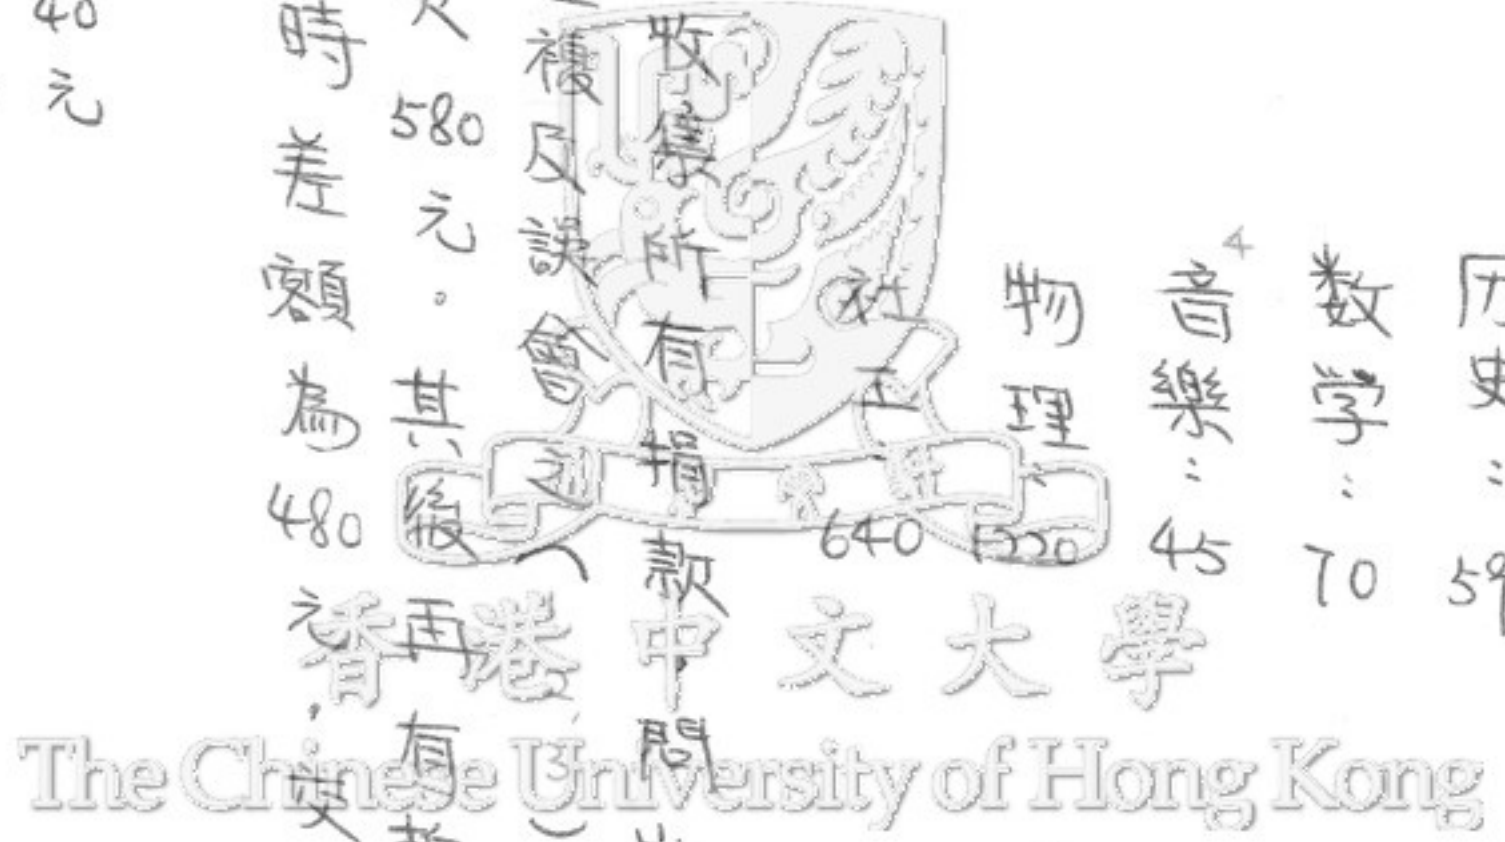 历史：59
数学：70
音樂：45
物理：520
社工 640
收集所有捐款，問
複及誤會之
580元。其後再有
時差額為480元，
40元
香港中文大學
The Chinese University of Hong Kong